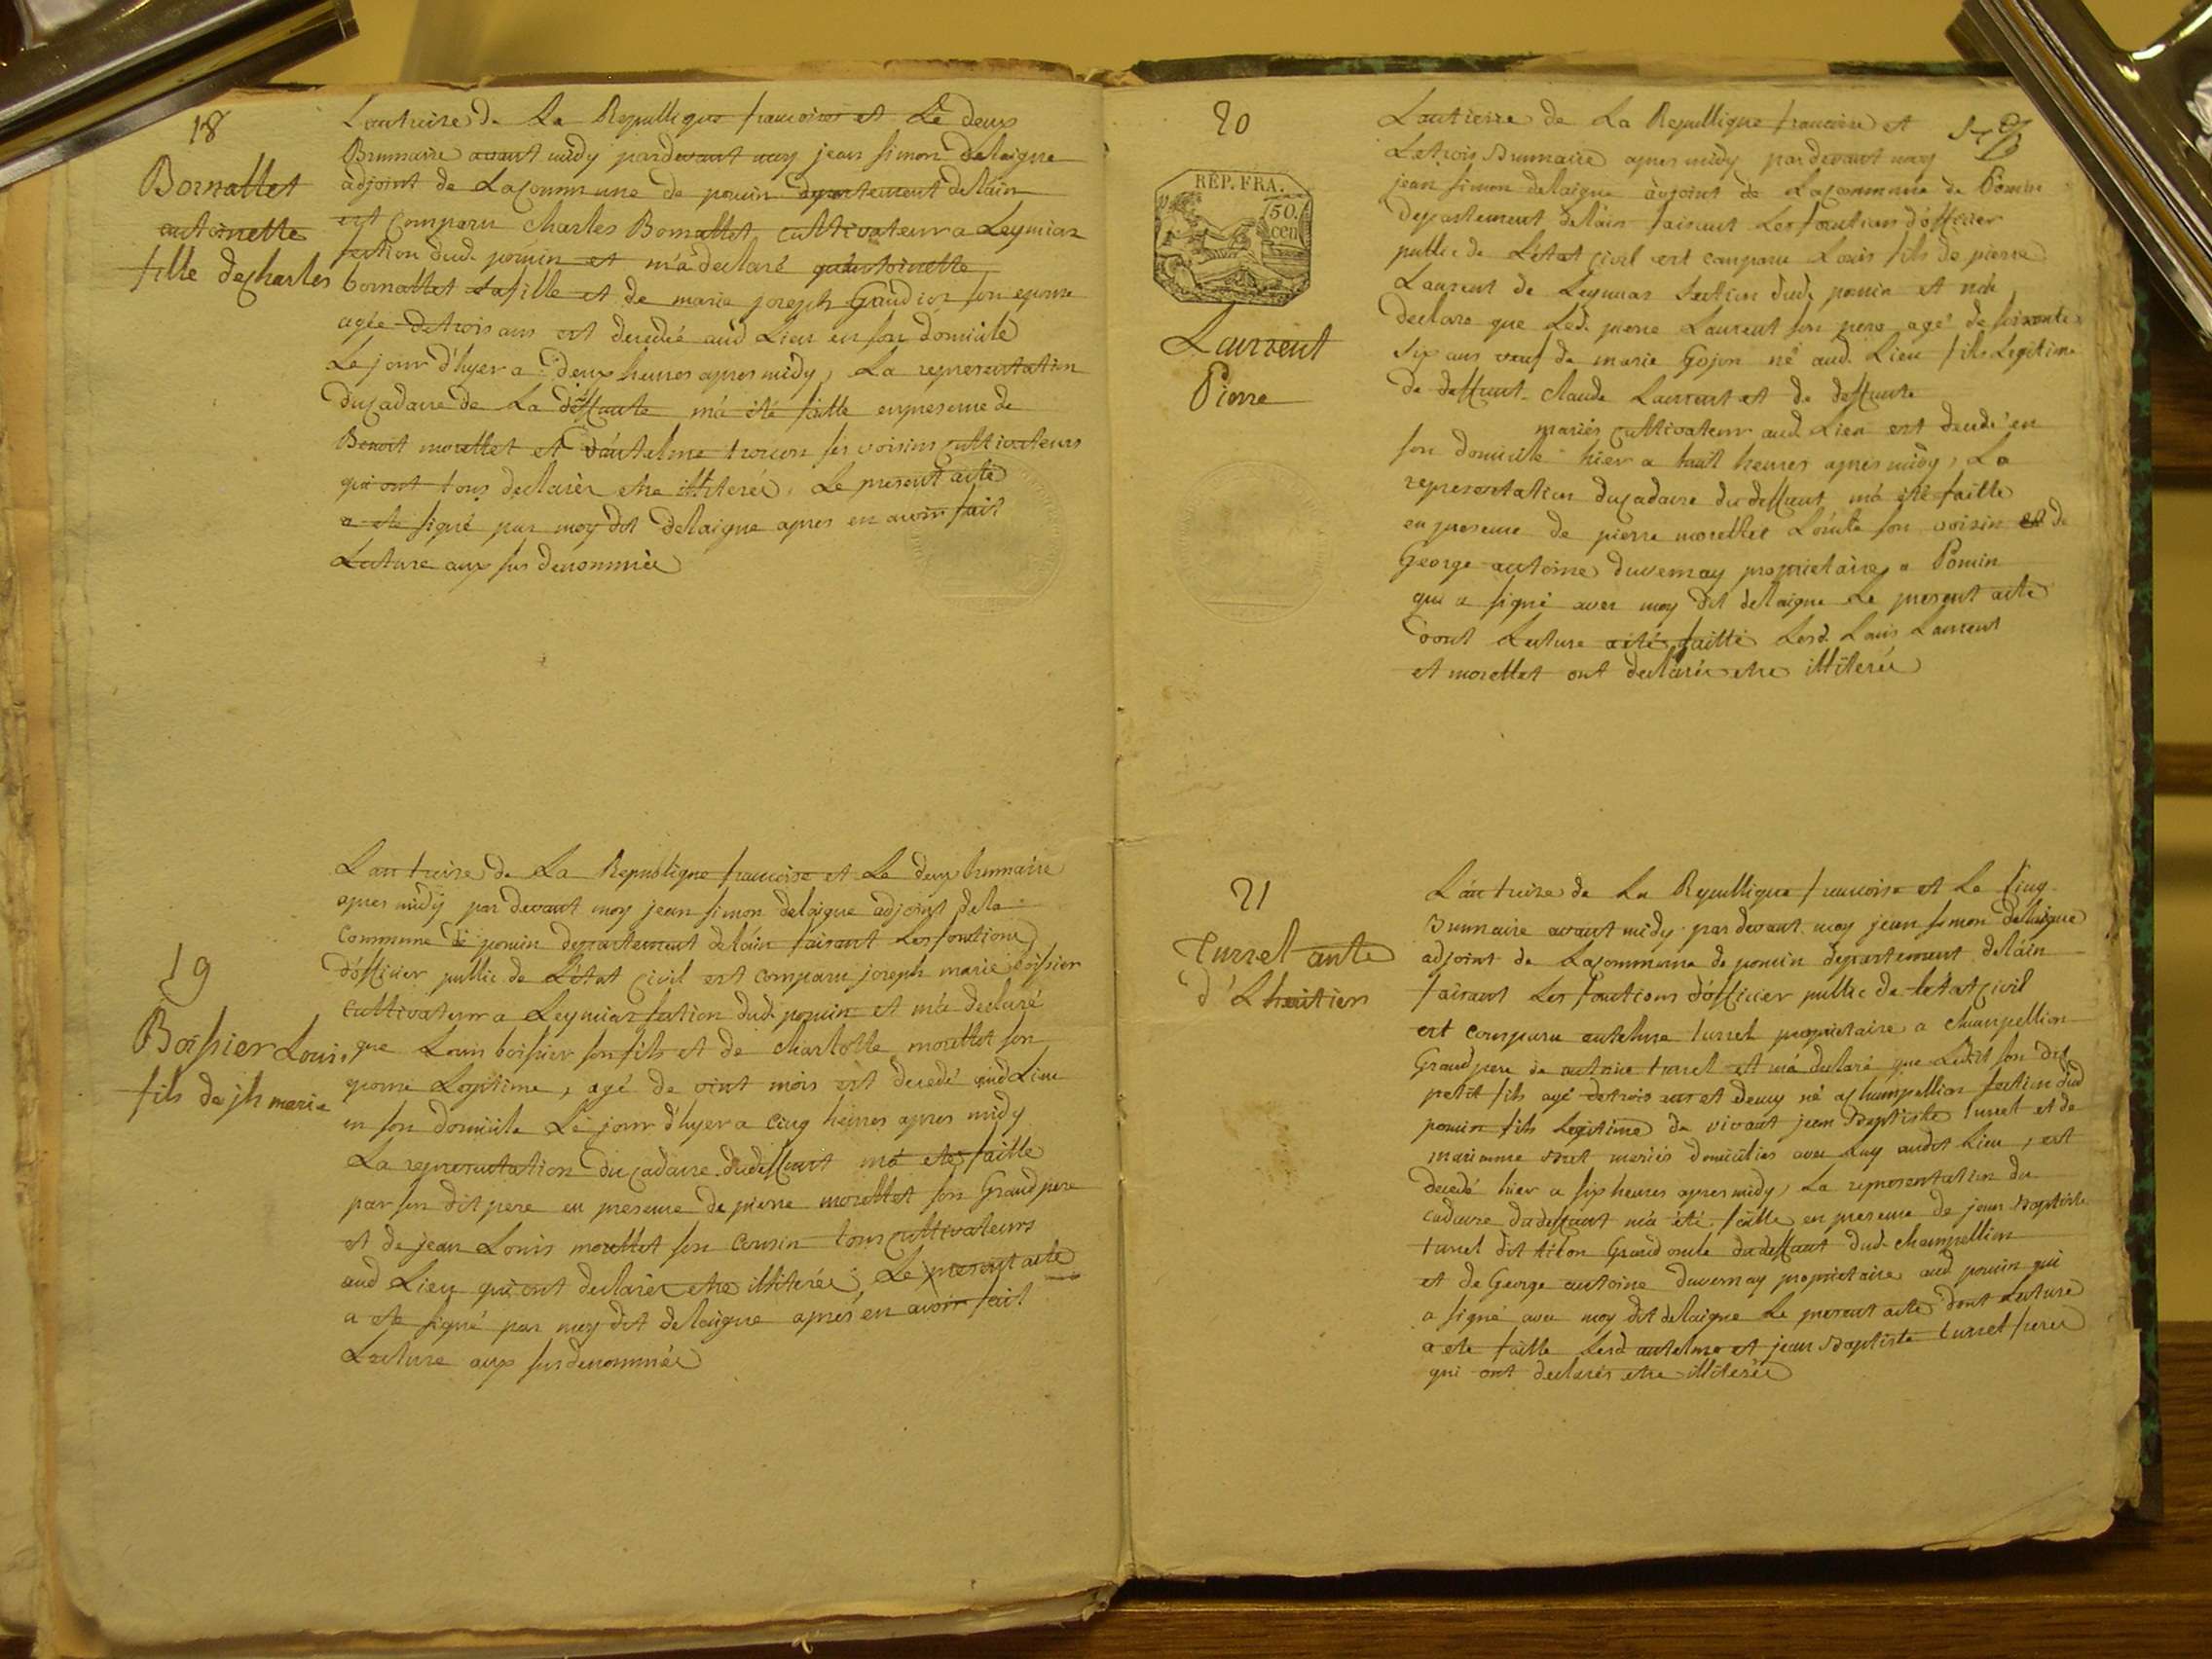 18
Bornallet
antoinette
fille de charles
Lantreize de La Republique francoise et Le deux
Brumaire avant midy pardevant moy jean simon delaigne
adjoint de La commune de poncin departement delain
est comparu charles Bornallet cultivateur a Leymiaz
section dud. poncin et m'a declaré qu'antoinette
bornallet sa fille et de marie joseph Gaudioz son epouse
agée de trois ans est decedée aud Lieu en son domicile
Le jour d'hyer a deux heures apres midy, La representation
du cadavre de La deffunte m'a été faitte en presence de
Benoit morellet et d'antelme troccon ses voisins cultivateurs
qui ont tous declarés etre illiterés, Le present acte
a ete signé par moy dit delaigne apres en avoir fait
Lecture aux sus denommés
19
Boissier Louis
fils de jh marie
Lan treize de La Republique francoise et Le deux brumaire
apres midy par devant moy jean simon delaigne adjoint dela
commune de poncin departement delain faisant Les fonctions
d'officier public de L'état civil est comparu joseph marie boissier
cultivateur a Leymiaz section dud. poncin et m'a declaré
que Louis boissier son fils et de charlotte morellet son
epouse Legitime, agé de vint mois est decedé aud Lieu
en son domicile Le jour d'hyer a cinq heures apres midy
La representation du cadavre dudeffunt m'a ete faitte
par son dit pere en presence de pierre morellet son Grand pere
et de jean Louis morellet son cousin tous cultivateurs
aud Lieu qui ont declarés etre illiterés, Le present acte
a ete signé par moy dit delaigne apres en avoir fait
Lecture aux sus denommés
20
REP. FRA.
50.
cen
Laurent
Pierre
Lantreize de La Republique francoise et
Le trois Brumaire apres midy par devant moy
jean simon delaigne adjoint de La commune de Poncin
departement delain faisant Les fonctions d'officier
public de L'état civil est comparu Louis fils de pierre
Laurent de Leymiaz section dud. poncin et m'a
declaré que Led. pierre Laurent son pere agé de soixante
six ans veuf de marie Gojon né aud. Lieu fils Legitime
de deffunt claude Laurent et de deffunte
mariés cultivateur aud. Lieu est decedé en
son domicile hier a huit heures apres midy, La
representation du cadavre du deffunt m'a été faitte
en presence de pierre morellet son voisin et de
George antoine duvernay proprietaire a Poncin
qui a signé avec moy dit delaigne Le present acte
dont Lecture a été faitte Lesd. Louis Laurent
et morellet ont declarés etre illiterés
21
Turrel ante
Lan treize de La Republique francoise et Le cinq
Brumaire avant midy par devant moy jean simon delaigne
adjoint de La commune de poncin departement delain
faisant Les fonctions d'officier public de l'état civil
est comparu antelme turrel proprietaire a champellion
Grand pere de antoine turrel et m'a declaré que Ledit son dit
petit fils agé de trois ans et demy né a champellion section dud
poncin fils Legitime de vivant jean Baptiste turrel et de
marianne mariés domiciliés avec Luy audit Lieu, est
decedé hier a six heures apres midy, La representation du
cadavre dudeffunt m'a été faitte en presence de jean Baptiste
turrel dit titon Grand oncle dudeffunt dud. champellion
et de George antoine duvernay proprietaire aud poncin qui
a signé avec moy dit delaigne Le present acte dont Lecture
a ete faitte Lesd antelme et jean Baptiste turrel freres
qui ont declarés etre illiterés